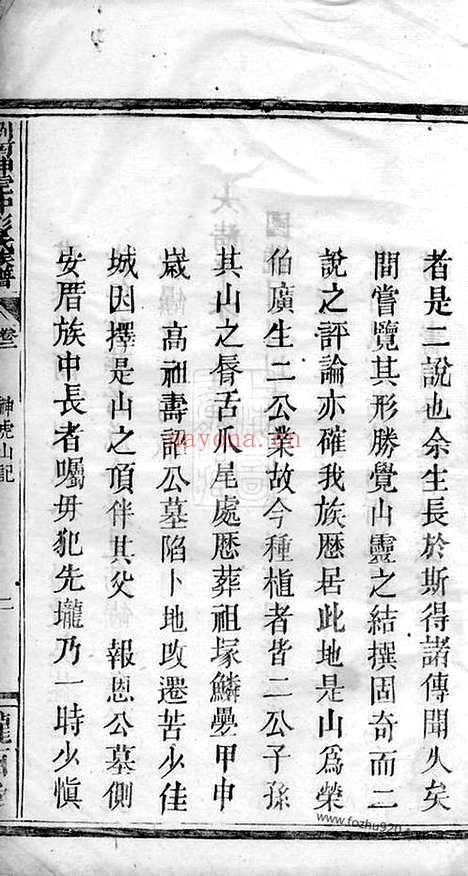 者是二說也余生長於斯得諸傳聞久矣
間嘗覽其形勝覺山靈之結撰固奇而二
說之評論亦確我族歷居此地是山為榮
伯廣生二公業故今種植者皆二公子孫
其山之脣舌爪尾處歷葬祖塚鱗疊甲申
歲 高祖壽詔公墓陷卜地改遷苦少佳
城因擇是山之頂伴其父 報恩公墓側
安厝族中長者囑毋犯先壠乃一時少慎
族譜
卷
神虎山記
二
nayona.cn
www.fozhu920.com